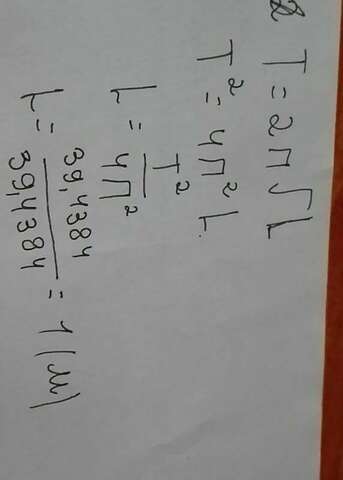 T = 2π√L
T² = 4π²L.
L = T²/4π²
L = 39,4384/39,4384 = 1 (м)